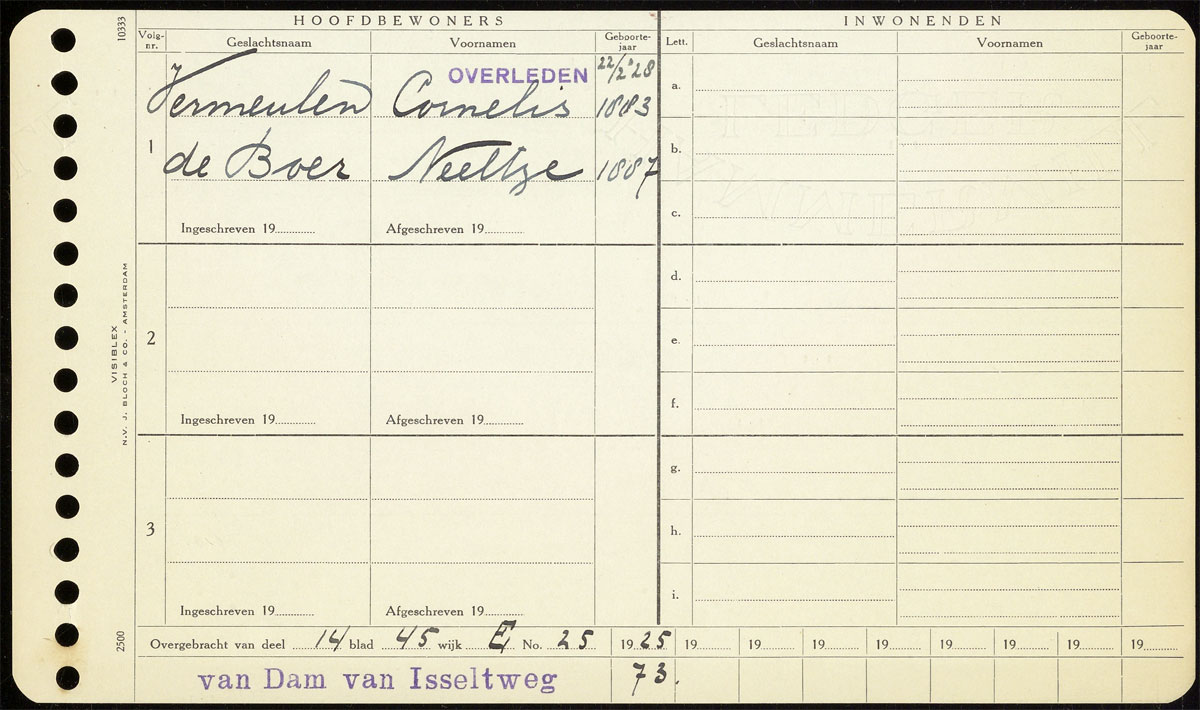 HOOFDBEWONERS INWONENDEN
Volg-nr. Geslachtsnaam Voornamen Geboorte-jaar Lett. Geslachtsnaam Voornamen Geboorte-jaar
OVERLEDEN 22/2 '28
Vermeulen Cornelis 1883
a.
1
de Boer Neeltje 1887
b.
Ingeschreven 19 Afgeschreven 19
c.
d.
2
e.
Ingeschreven 19 Afgeschreven 19
f.
g.
3
h.
i.
Ingeschreven 19 Afgeschreven 19
Overgebracht van deel 14 blad 45 wijk E No. 25 1925 19 19 19 19 19 19 19 19
van Dam van Isseltweg 73.
10333
VISIBLEX
N.V. J. BLOCH & CO. - AMSTERDAM
2500